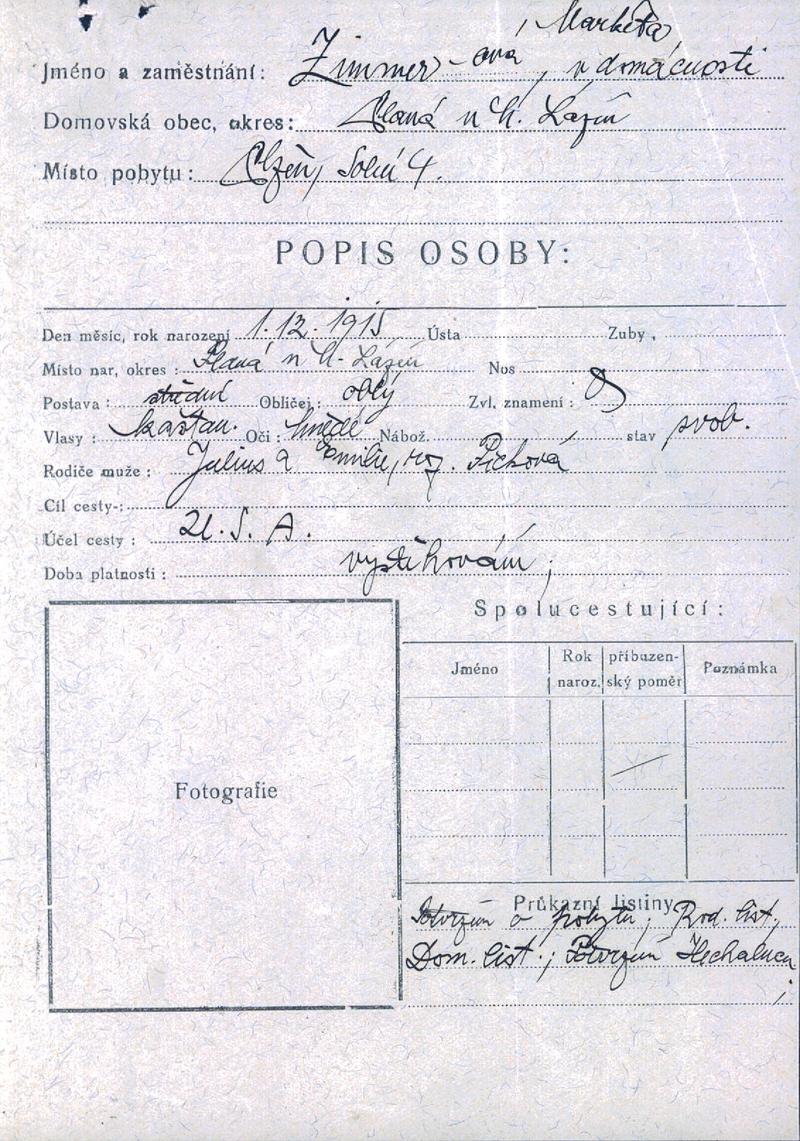 Markéta
Jméno a zaměstnání: Zimmer-ová, v domácnosti
Domovská obec, okres: Planá u M. Lázní
Místo pobytu: Plzeň, Solní 4.
POPIS OSOBY:
Den měsíc, rok narození 1.12.1915 Ústa Zuby,
Místo nar, okres: Planá u M. Lázní Nos
Postava: střední Obličej: oblý Zvl. znamení:
Vlasy: kaštan. Oči: hnědé Nábož. stav svob.
Rodiče muže: Julius a Emilie, roz. Picková
Cíl cesty-:
Účel cesty: U.S.A.
Doba platnosti: vystěhování;
Spolucestující:
Jméno Rok naroz. příbuzenský poměr Poznámka
Fotografie
Průkazní listiny
Potvrzení o pobytu; Rod. list;
Dom. list.; Potvrzení Hechaluca;